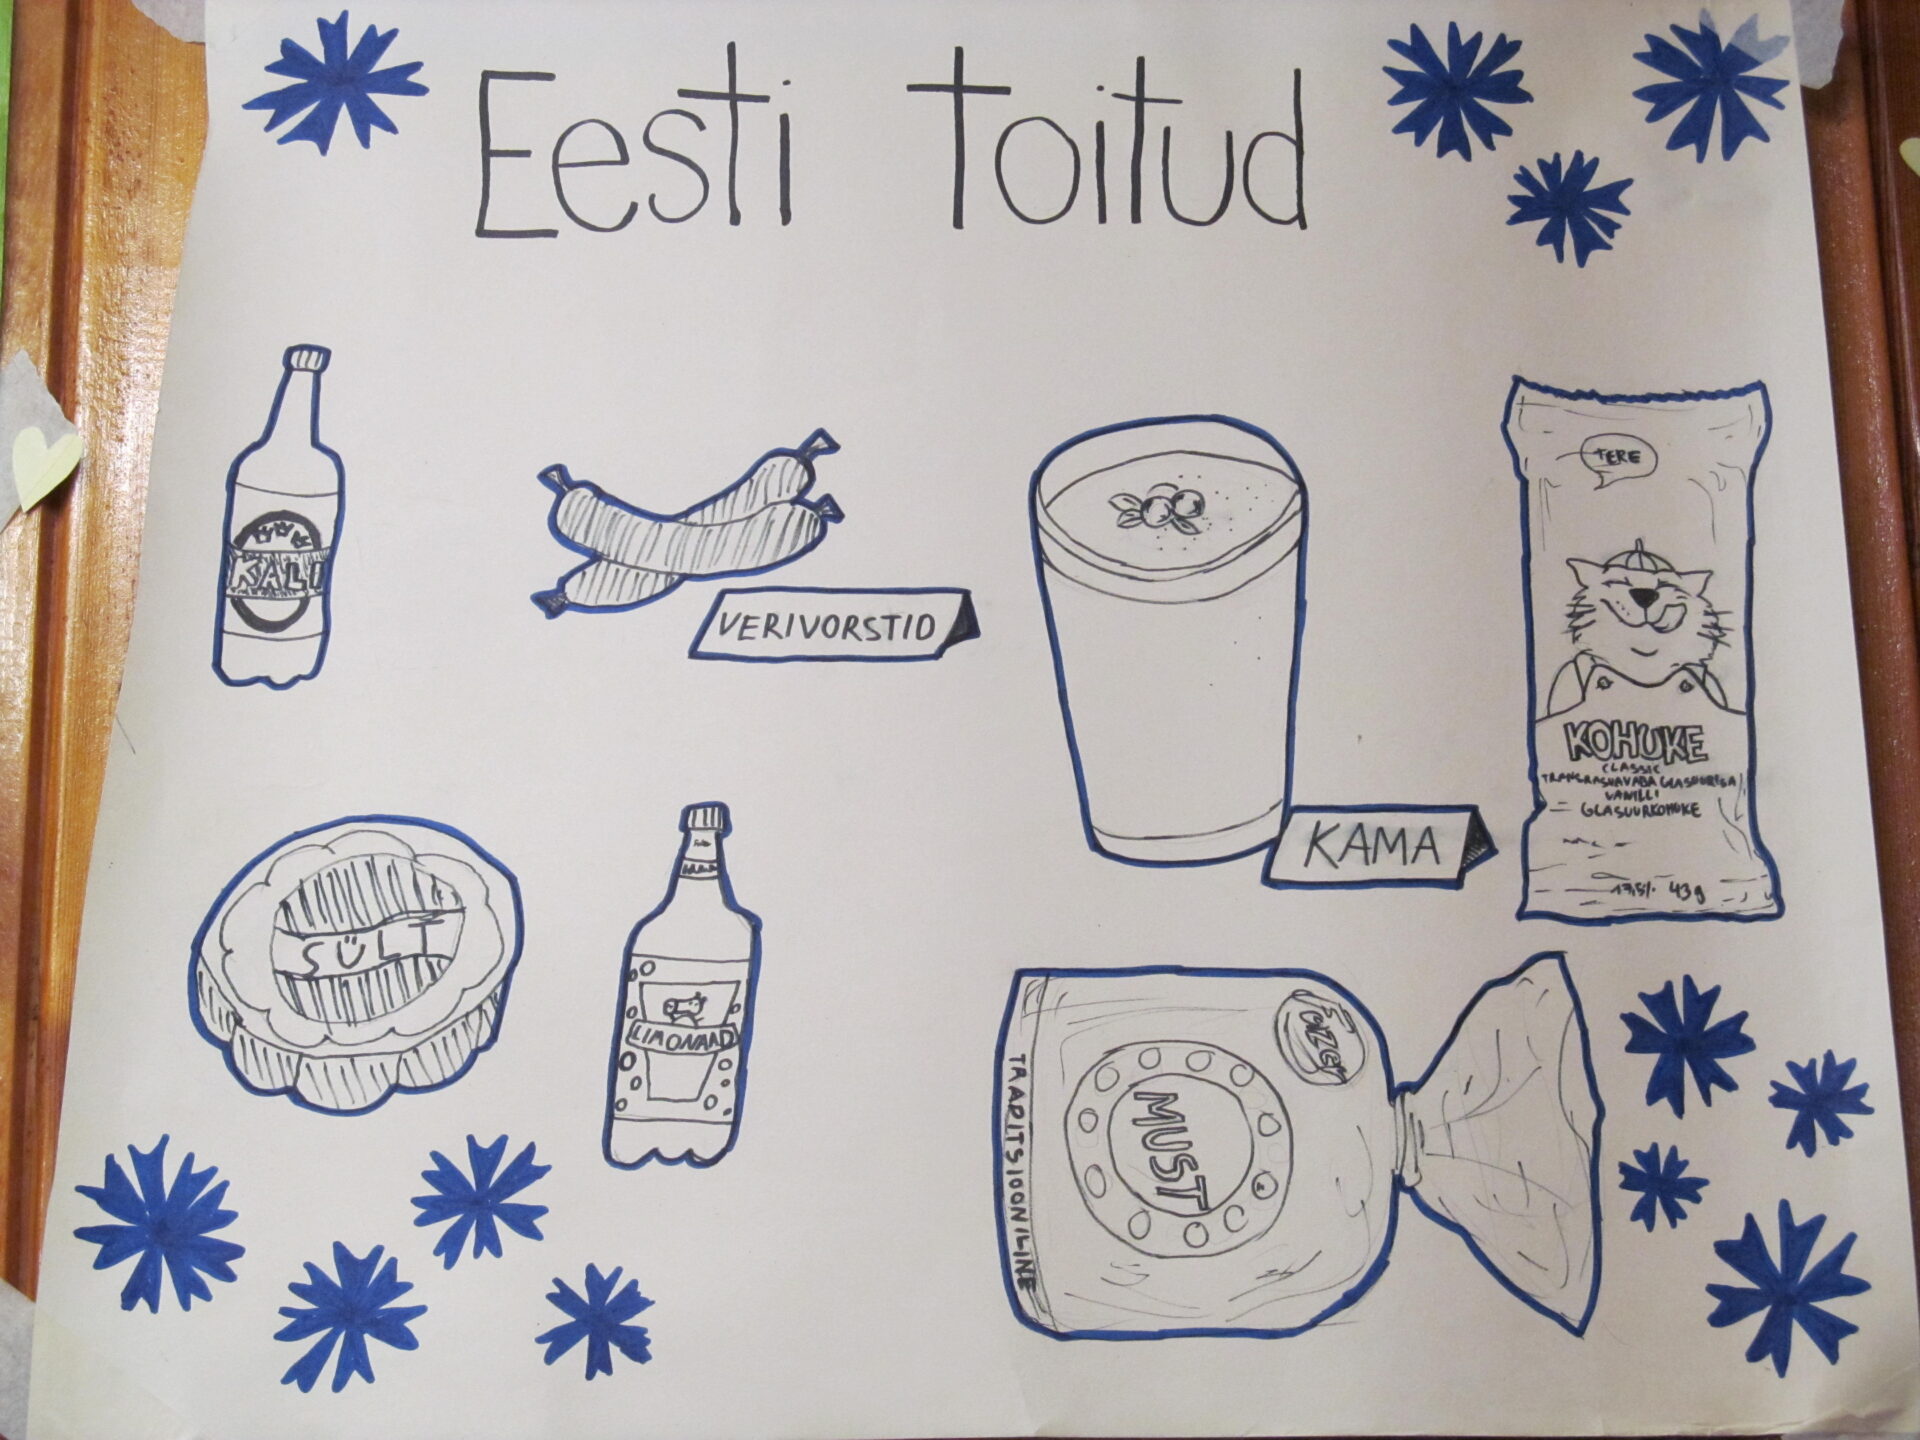 Eesti toitud
TERE
KALI
VERIVORSTID
KOHUKE
CLASSIC
VANILLI
GLASUURKOHUKE
43g
KAMA
SÜLT
LIMONAAD
FAZER
MUST
TRADITSIOONILINE